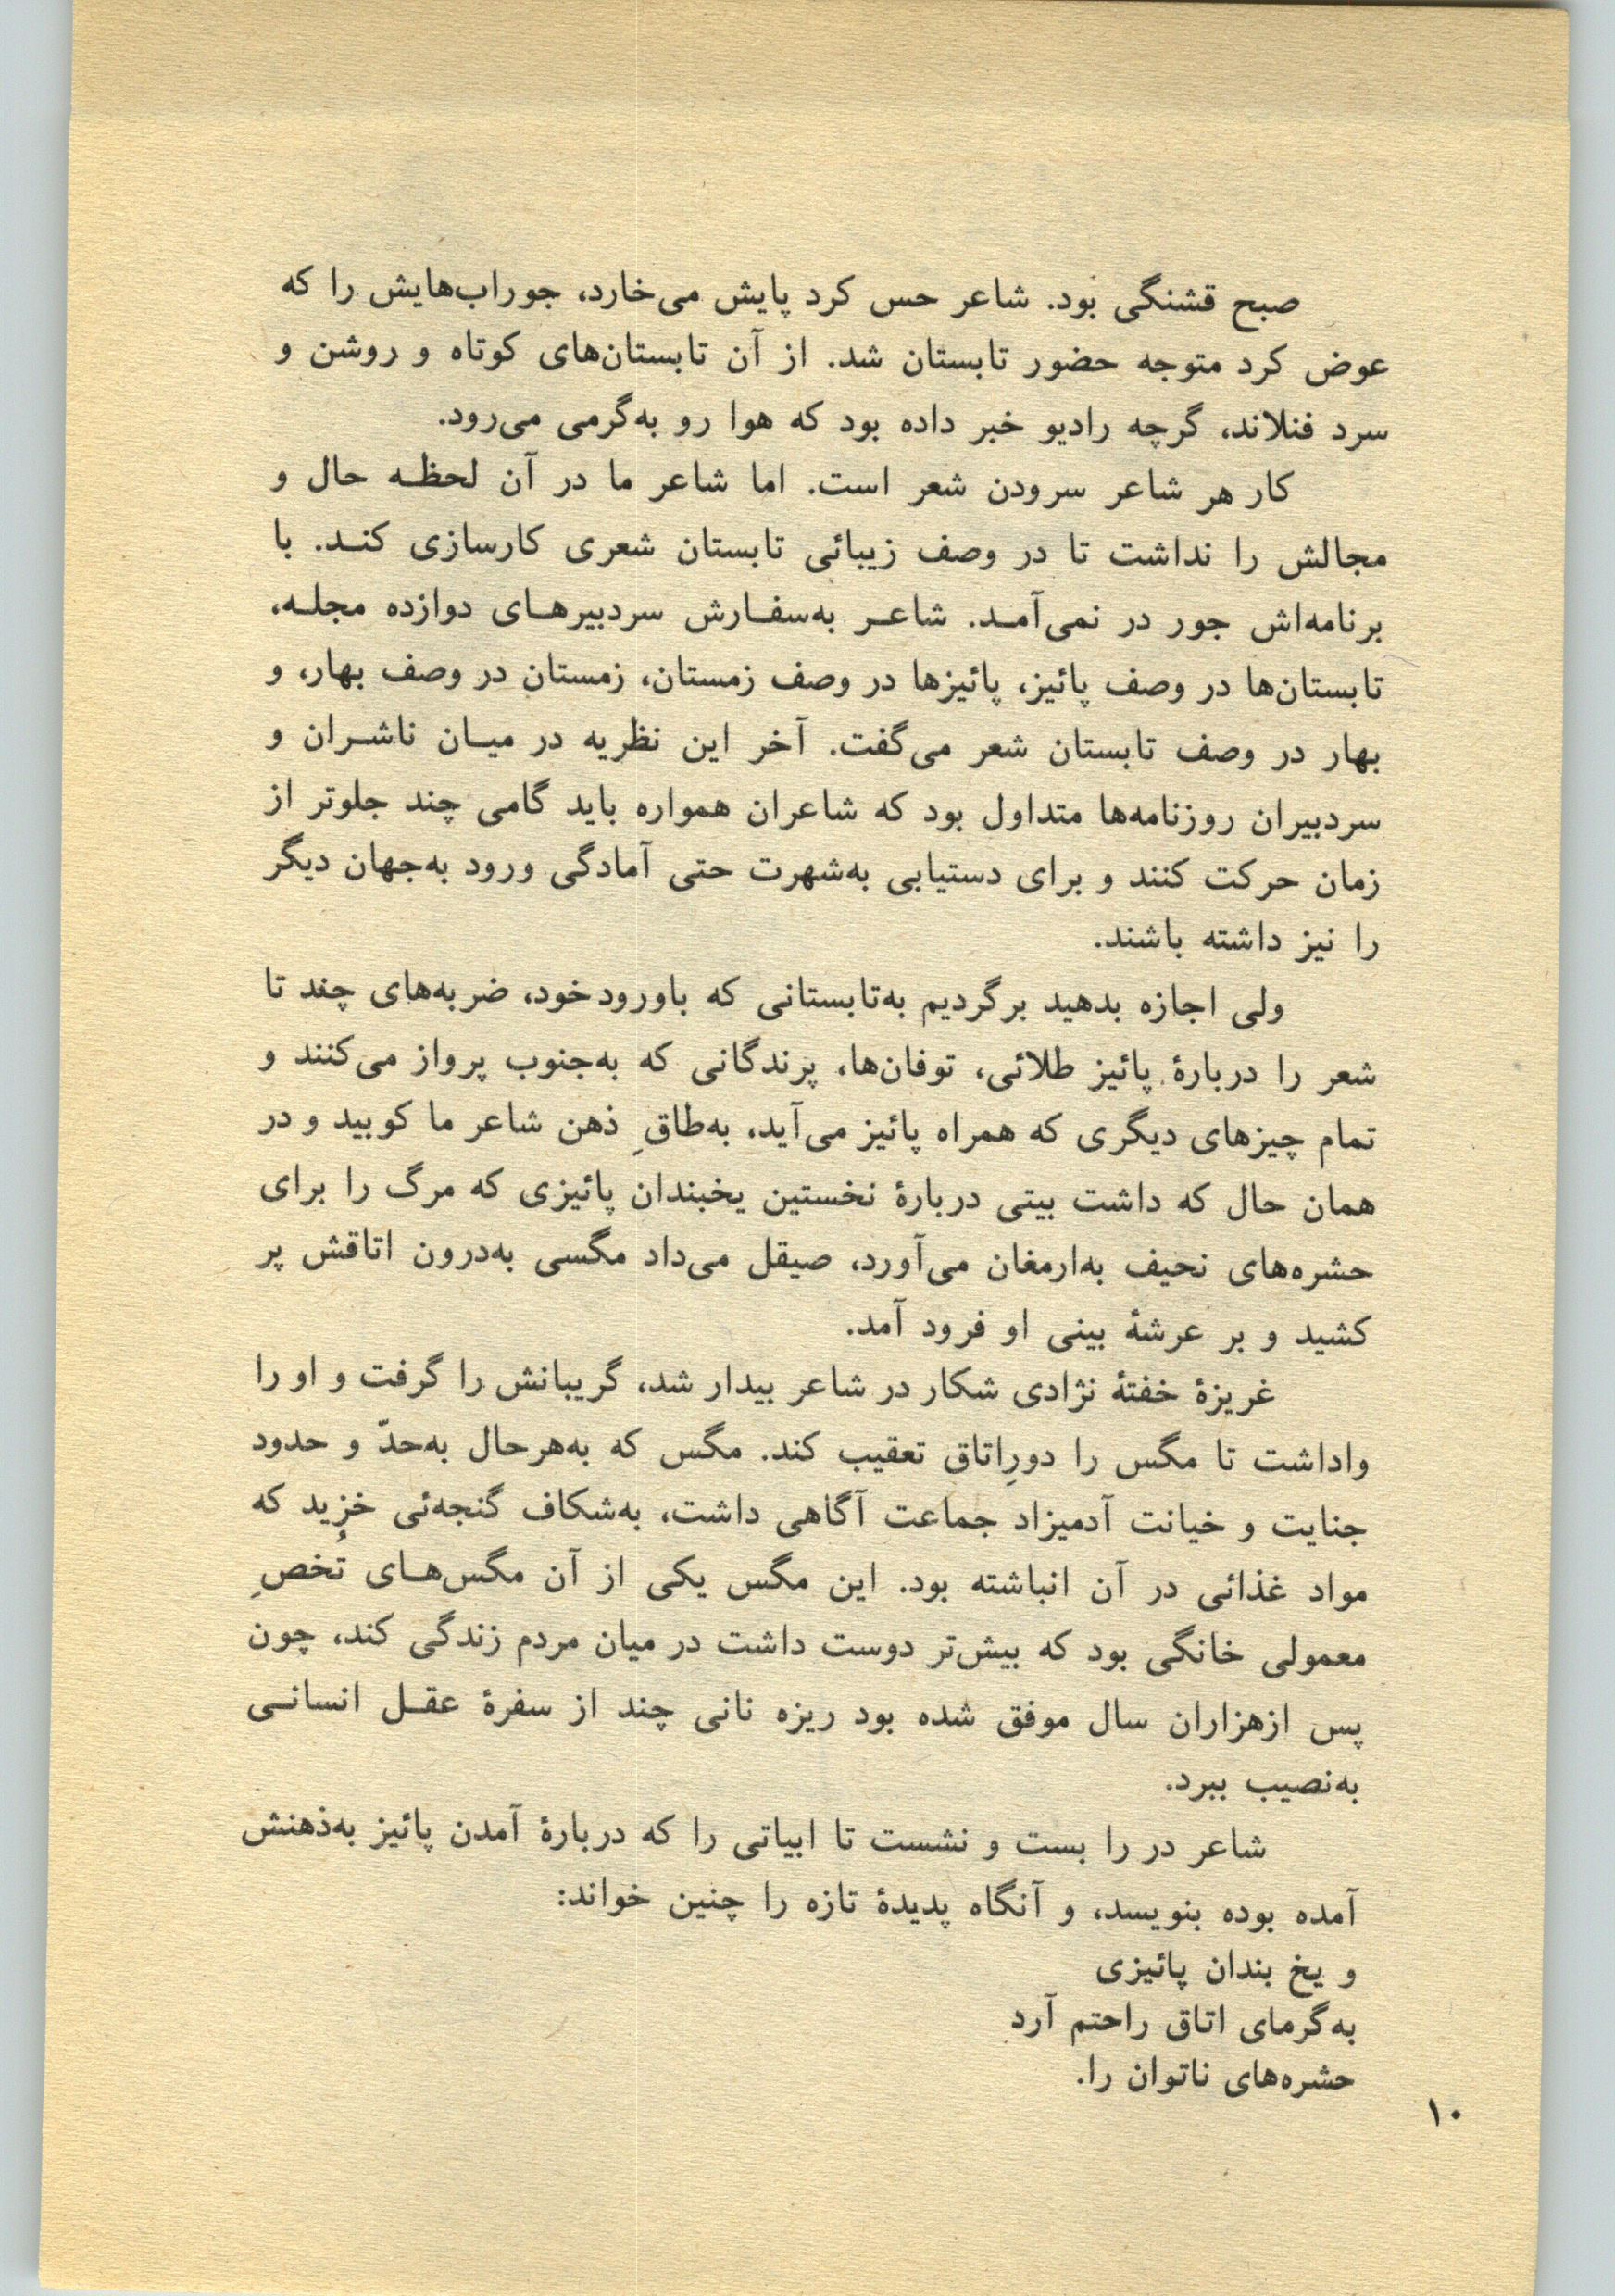 صبح قشنگی بود. شاعر حس کرد پایش می‌خارد، جوراب‌هایش را که
عوض کرد متوجه حضور تابستان شد. از آن تابستان‌های کوتاه و روشن و
سرد فنلاند، گرچه رادیو خبر داده بود که هوا رو به‌گرمی می‌رود.
کار هر شاعر سرودن شعر است. اما شاعر ما در آن لحظه حال و
مجالش را نداشت تا در وصف زیبائی تابستان شعری کارسازی کند. با
برنامه‌اش جور در نمی‌آمد. شاعر به‌سفارش سردبیرهای دوازده مجله،
تابستان‌ها در وصف پائیز، پائیزها در وصف زمستان، زمستان در وصف بهار، و
بهار در وصف تابستان شعر می‌گفت. آخر این نظریه در میان ناشران و
سردبیران روزنامه‌ها متداول بود که شاعران همواره باید گامی چند جلوتر از
زمان حرکت کنند و برای دستیابی به‌شهرت حتی آمادگی ورود به‌جهان دیگر
را نیز داشته باشند.
ولی اجازه بدهید برگردیم به‌تابستانی که باورود خود، ضربه‌های چند تا
شعر را دربارهٔ پائیز طلائی، توفان‌ها، پرندگانی که به‌جنوب پرواز می‌کنند و
تمام چیزهای دیگری که همراه پائیز می‌آید، به‌طاقِ ذهن شاعر ما کوبید و در
همان حال که داشت بیتی دربارهٔ نخستین یخبندان پائیزی که مرگ را برای
حشره‌های نحیف به‌ارمغان می‌آورد، صیقل می‌داد مگسی به‌درون اتاقش پر
کشید و بر عرشهٔ بینی او فرود آمد.
غریزهٔ خفتهٔ نژادی شکار در شاعر بیدار شد، گریبانش را گرفت و او را
واداشت تا مگس را دورِاتاق تعقیب کند. مگس که به‌هرحال به‌حدّ و حدود
جنایت و خیانت آدمیزاد جماعت آگاهی داشت، به‌شکاف گنجه‌ئی خزید که
مواد غذائی در آن انباشته بود. این مگس یکی از آن مگس‌های تُخصِ
معمولی خانگی بود که بیش‌تر دوست داشت در میان مردم زندگی کند، چون
پس ازهزاران سال موفق شده بود ریزه نانی چند از سفرهٔ عقل انسانی
به‌نصیب ببرد.
شاعر در را بست و نشست تا ابیاتی را که دربارهٔ آمدن پائیز به‌ذهنش
آمده بوده بنویسد، و آنگاه پدیدهٔ تازه را چنین خواند:
و یخ بندان پائیزی
به‌گرمای اتاق راحتم آرد
حشره‌های ناتوان را.
۱۰